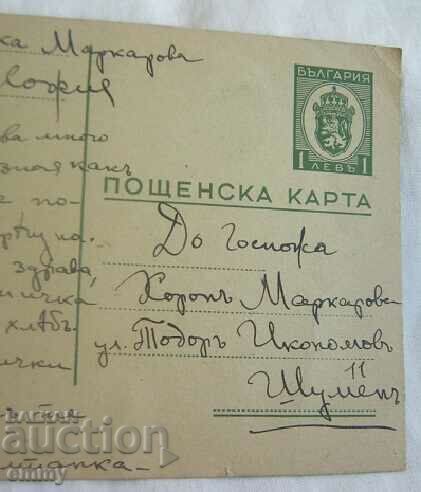 ка Маркарова
София
ва много
зная какъ
по-
здрава,
ничка
хлѣбъ
ички
БЪЛГАРИЯ
1 ЛЕВЪ 1
ПОЩЕНСКА КАРТА
До Госпожа
Хоропъ Маркарова
ул. Тодоръ Икономовъ
11
Шуменъ
auction
emmy